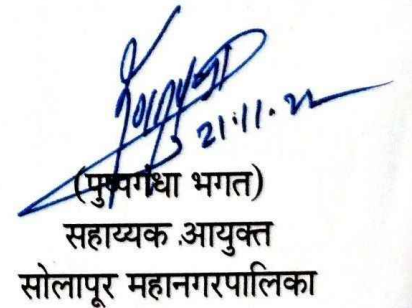 21.11.22
(पुष्पगंधा भगत)
सहाय्यक आयुक्त
सोलापूर महानगरपालिका